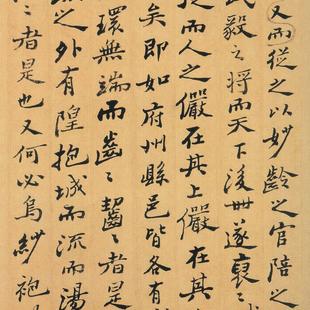 又而從之以妙齡之官陪之
毅之將而天下後世遂裒〻
從而人之儼在其上儼在其
矣即如府州縣邑皆各有
環無端而齒〻齧〻者是
之外有隍抱城而流而湯
〻者是也又何必烏紗袍